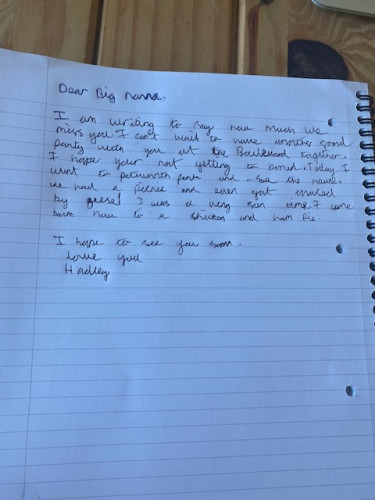 Dear Big nanna,
I am writing to say how much we
miss you. I can't wait to have another good
party with you at the together.
I hope your not getting to bored. Today I
went to park and saw the house.
we had a picnic and even got chased
by geese! I was a very fun time. I came
home now to a chicken and ham Pie.
I hope to see you soon.
love you
Hadley